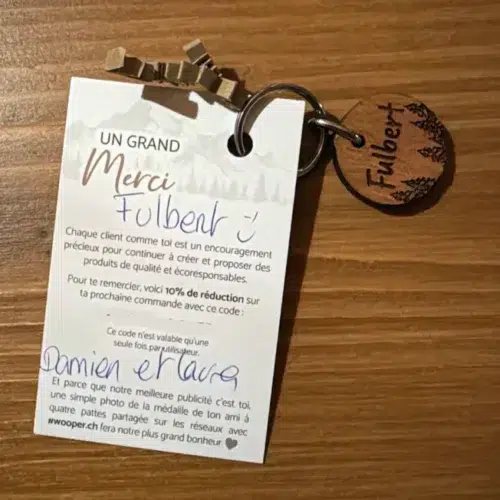 UN GRAND
Merci
Fulbert
Chaque client comme toi est un encouragement
précieux pour continuer à créer et proposer des
produits de qualité et écoresponsables.
Pour te remercier, voici 10% de réduction sur
ta prochaine commande avec ce code :
Ce code n'est valable qu'une
seule fois par utilisateur.
Damien et Laura
Et parce que notre meilleure publicité c'est toi,
une simple photo de la médaille de ton ami à
quatre pattes partagée sur les réseaux avec
#wooper.ch fera notre plus grand bonheur
Fulbert